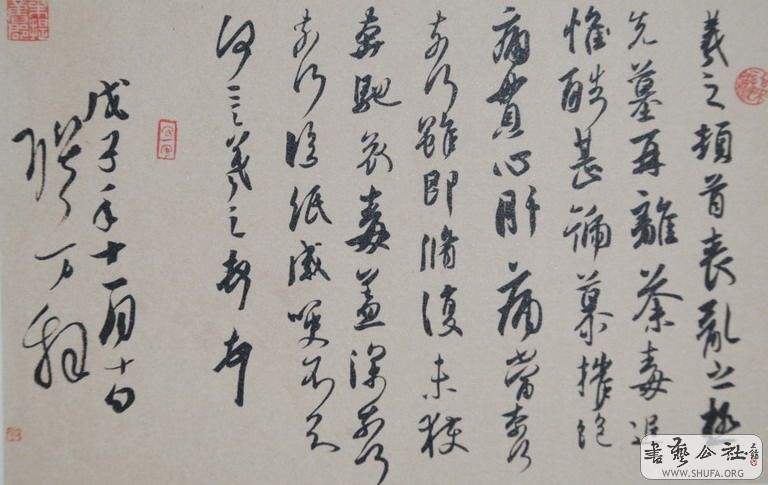 羲之頓首喪亂之極
先墓再離荼毒追
惟酷甚號慕摧絕
痛貫心肝痛當奈何
奈何雖即脩復未獲
奔馳哀毒益深奈何
奈何臨紙感哽不知
何言羲之頓首
戊子年十一月十
書藝公社
WWW.SHUFA.ORG